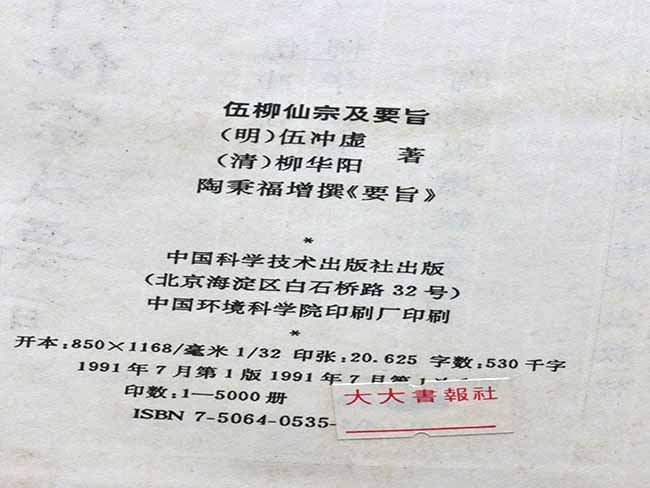 伍柳仙宗及要旨
(明)伍冲虚
(清)柳华阳 著
陶秉福增撰《要旨》
*
中国科学技术出版社出版
(北京海淀区白石桥路 32 号)
中国环境科学院印刷厂印刷
*
开本:850×1168/毫米 1/32 印张:20.625 字数:530 千字
1991 年 7 月第 1 版 1991 年 7 月第 1
印数:1—5000 册
ISBN 7-5064-0535-
大大書報社